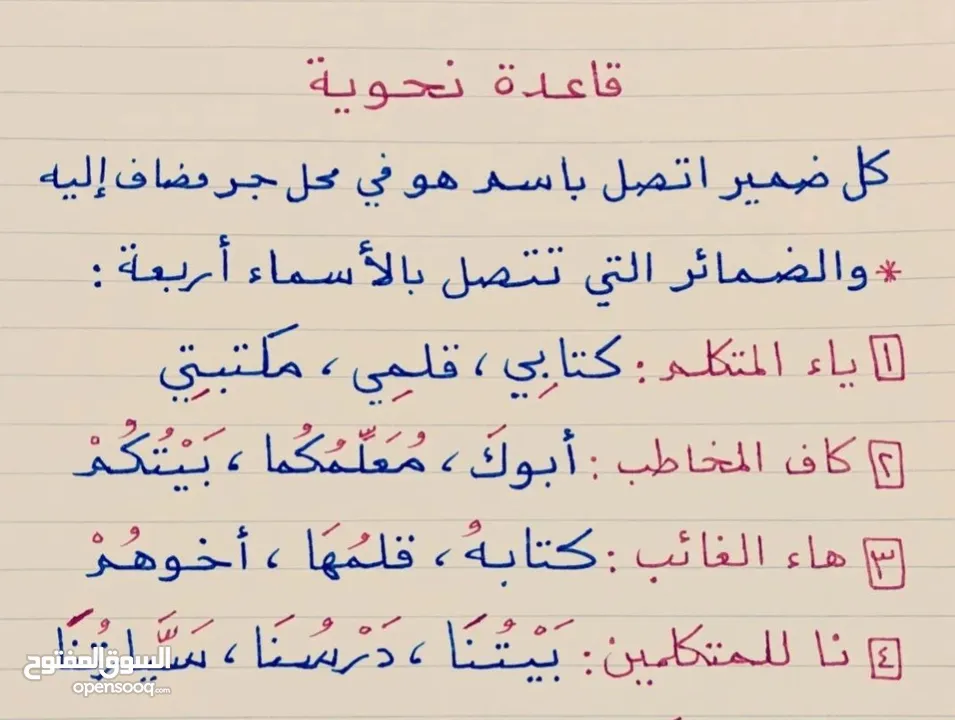 قاعدة نحوية
كل ضمير اتصل باسم هو في محل جر مضاف إليه
* والضمائر التي تتصل بالأسماء أربعة :
١ ياء المتكلم : كتابِي ، قلمِي ، مكتبتِي
٢ كاف المخاطب : أبوكَ ، مُعَلِّمُكُما ، بَيْتُكُمْ
٣ هاء الغائب : كتابهُ ، قلمُهَا ، أخوهُمْ
٤ نا للمتكلمين : بَيْتُنَا ، دَرْسُنَا ، سَيَّارتُنَا
السوق المفتوح
opensooq.com